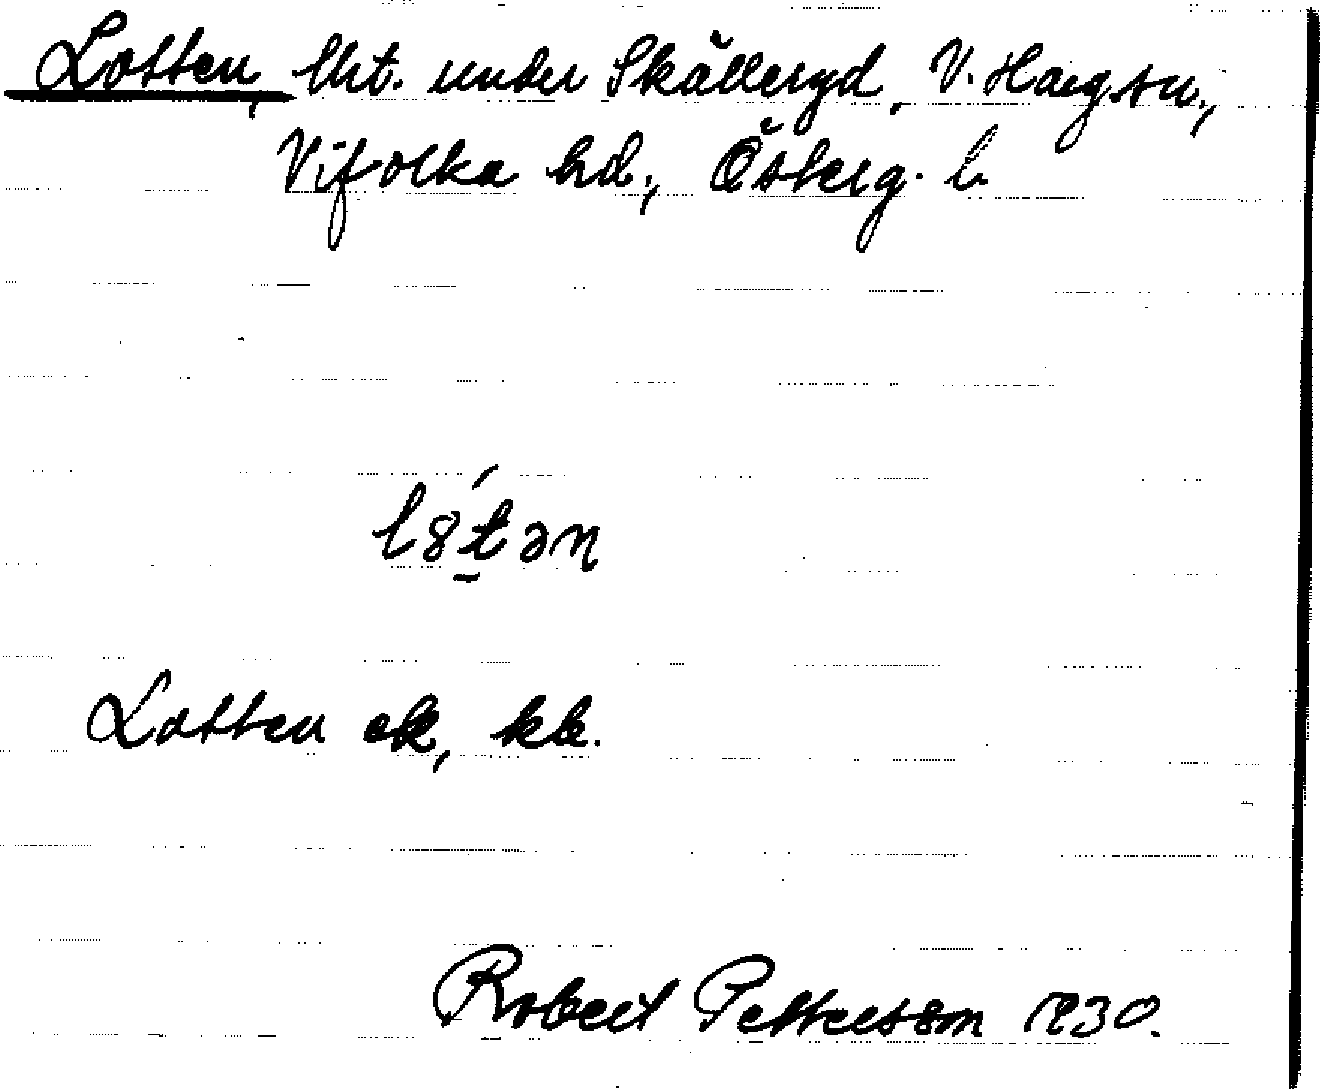 Lotten, lht. under Skälleryd, V. Harg sn.,
Vifolka hd., Österg. l.
l8́t̠ən
Lotten ek, kbl.
Robert Petterson 1930.